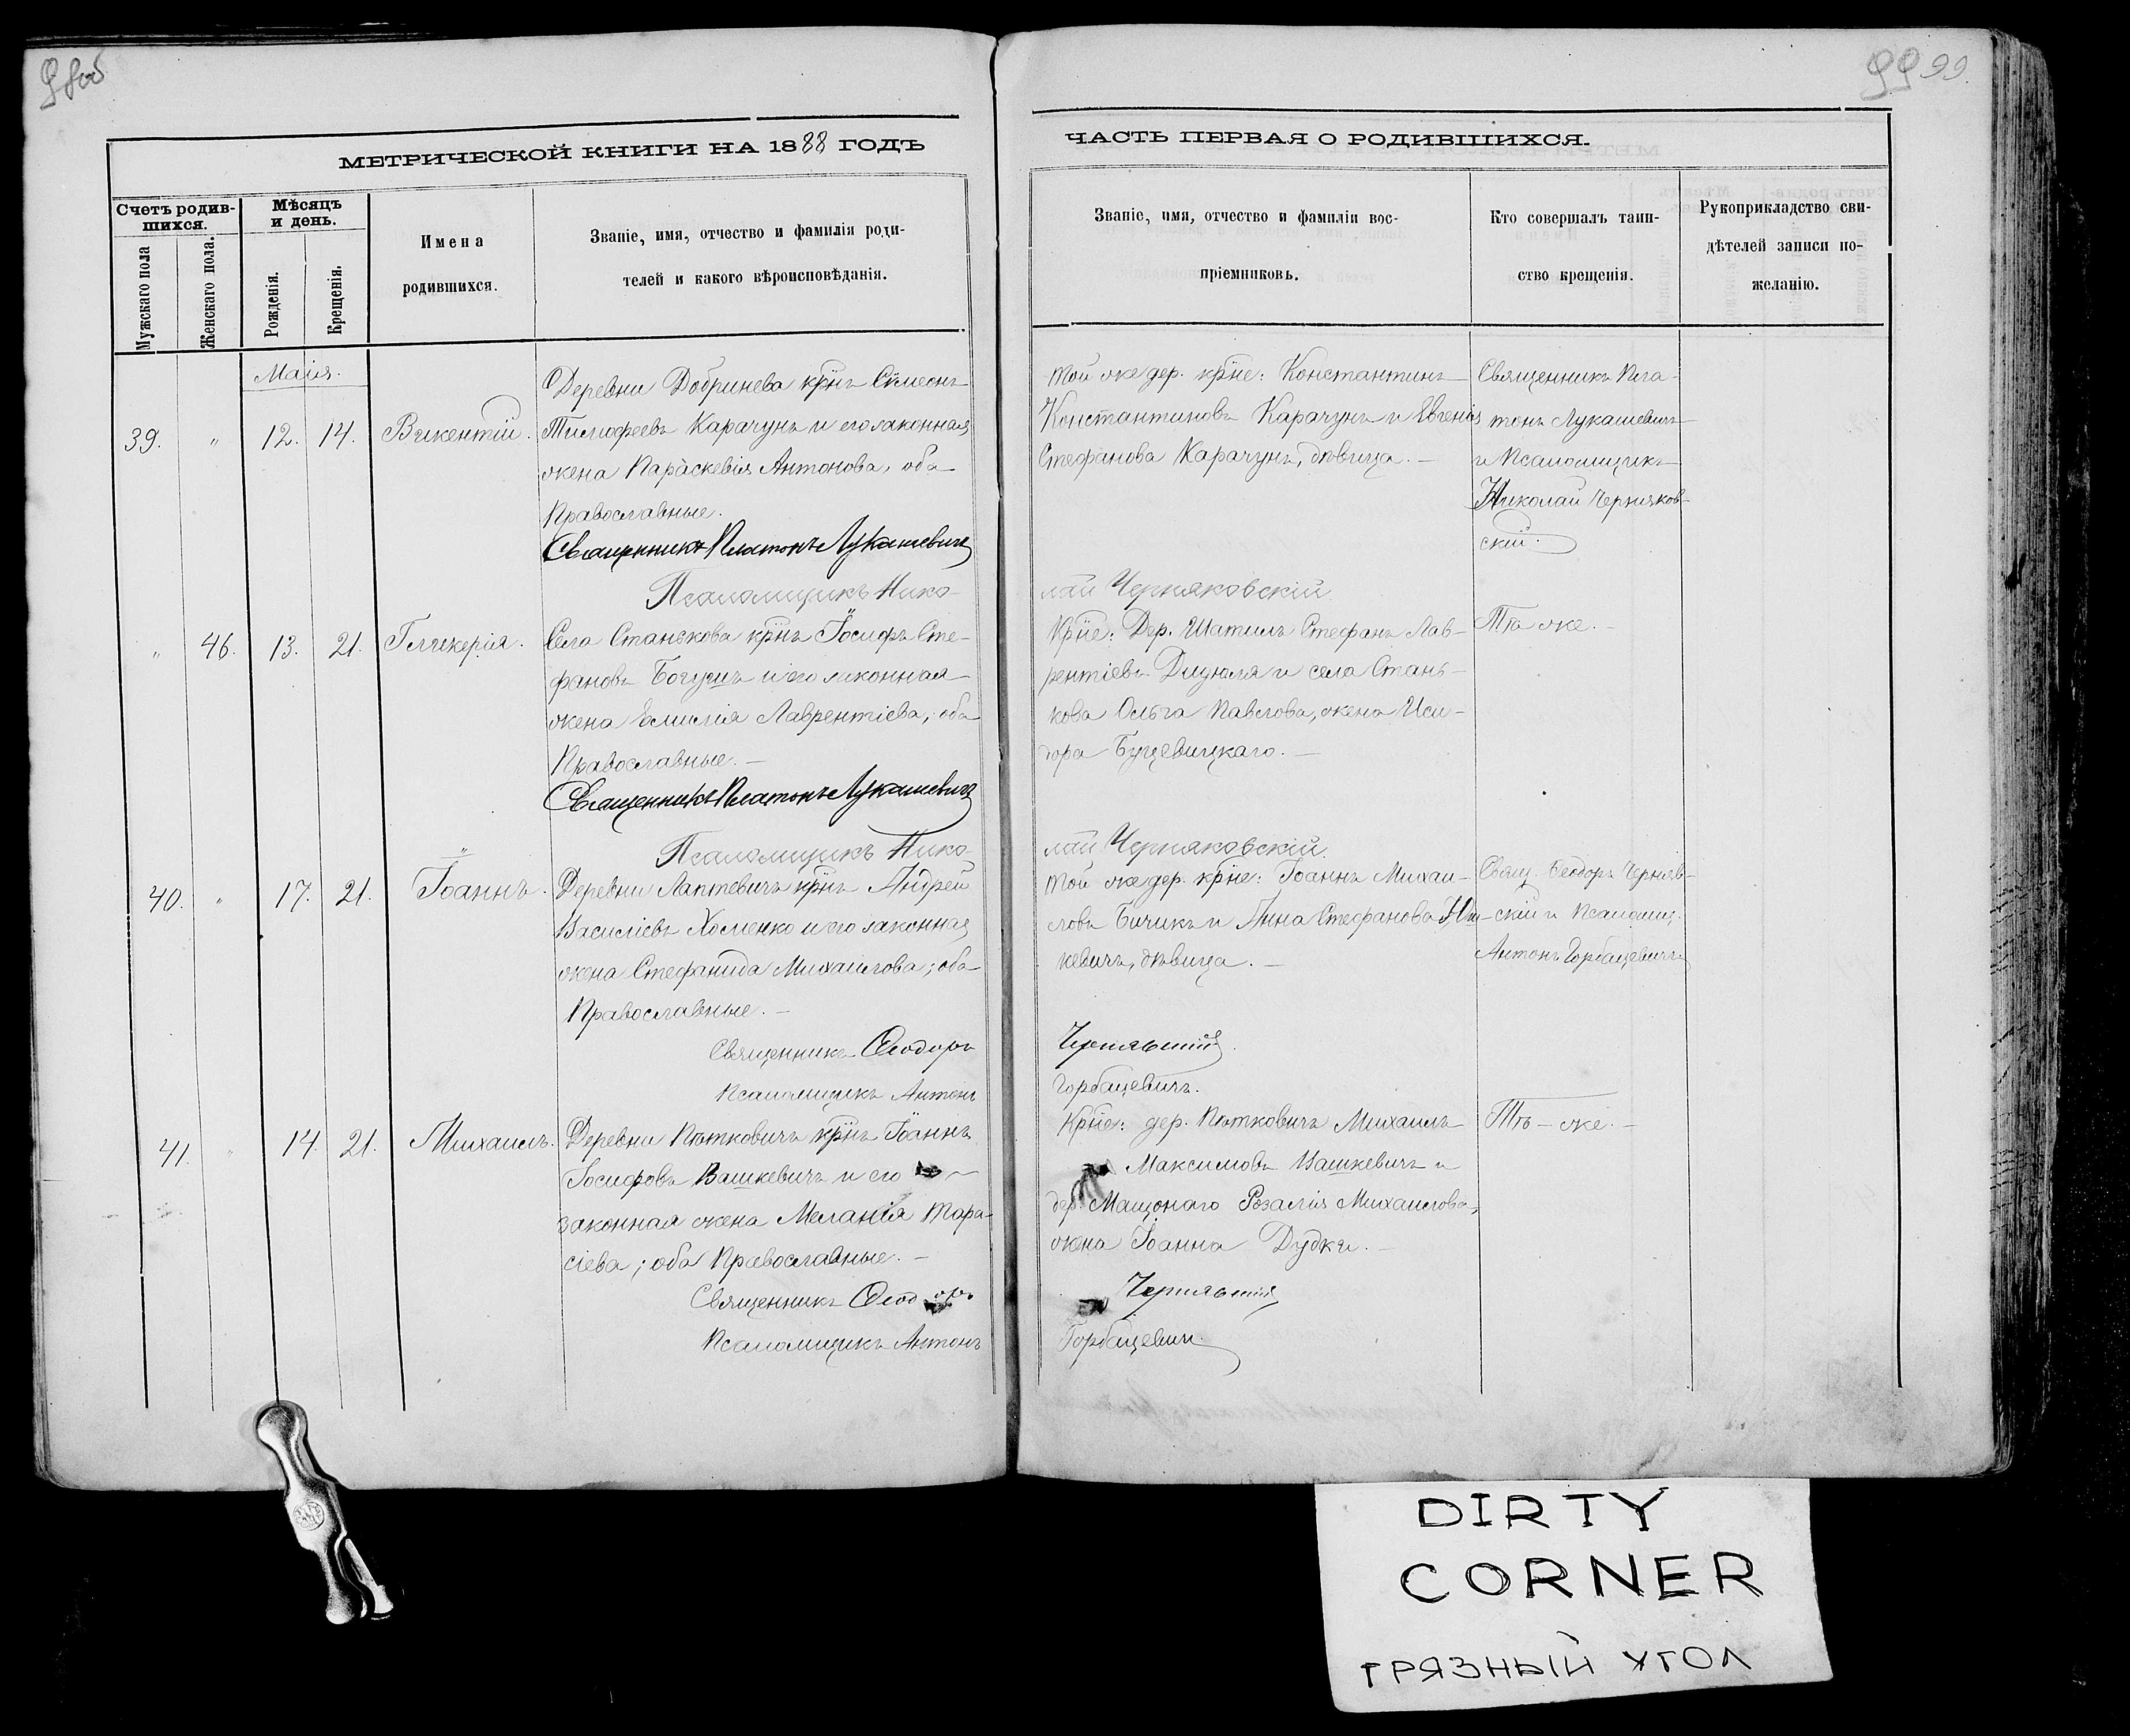 98об
МЕТРИЧЕСКОЙ КНИГИ НА 1888 ГОДЪ
Счетъ родив-
шихся.
Мужскаго пола
Женскаго пола.
Мѣсяцъ
и день.
Рожденія.
Крещенія.
Имена
родившихся.
Званіе, имя, отчество и фамилія роди-
телей и какого вѣроисповѣданія.
Маія.
39. " 12. 14. Викентій.
Деревни Добринева крнъ Сѵмеонъ
Тимофеевъ Карачунъ и его законная
жена Параскевія Антонова, оба
Православные.
Священникъ Платонъ Лукашевичъ
Псаломщикъ Нико-
" 46. 13. 21. Гликерія.
Села Станькова крнъ Іосифъ Сте-
фановъ Богушъ и его законная
жена Емилія Лаврентіева; оба
Православные. —
Священникъ Платонъ Лукашевичъ
Псаломщикъ Нико-
40. " 17. 21. Іоаннъ.
Деревни Лаптевичъ крнъ Андрей
Василіевъ Хоменко и его законная
жена Стефанида Михаилова; оба
Православные. —
Священникъ Ѳеодоръ
Псаломщикъ Антонъ
41. " 14. 21. Михаилъ.
Деревни Пяткович крнъ Іоаннъ
Іосифовъ Вашкевичъ и его
законная жена Меланія Тара-
сіева; оба Православные. —
Священникъ Ѳеодоръ
Псаломщикъ Антонъ
99 99.
ЧАСТЬ ПЕРВАЯ О РОДИВШИХСЯ.
Званіе, имя, отчество и фамиліи вос-
пріемниковъ.
Кто совершалъ таин-
ство крещенія.
Рукоприкладство сви-
дѣтелей записи по-
желанію.
Той же дер. крне: Константинъ
Константиновъ Карачунъ и Евгенія
Стефанова Карачунъ, дѣвица. —
Священникъ Пла-
тонъ Лукашевичъ
и Псаломщикъ
Николай Черняков-
скій.
лай Черняковскій
Крне: Дер. Шатилъ Стефанъ Лав-
рентіевъ Дидюля и села Стань-
кова Ольга Павлова, жена Иси-
дора Буцевицкаго. —
Тѣ же. —
лай Черняковскій.
Той же дер. крне: Іоаннъ Михаи-
ловъ Бичикъ и Анна Стефанова
кевичъ, дѣвица. —
Свящ. Ѳеодоръ Черняв-
скій и Псаломщ.
Антонъ Горбацевичъ
Чернявскій.
Горбацевичъ.
Крне: дер. Пятковичъ Михаилъ
Максимовъ Вашкевичъ и
дер. Мащонаго Розалія Михаилова,
жена Іоанна Дудки. —
Тѣ — же. —
Чернявскій
Горбацевичъ.
DIRTY
CORNER
ГРЯЗНЫЙ УГОЛ